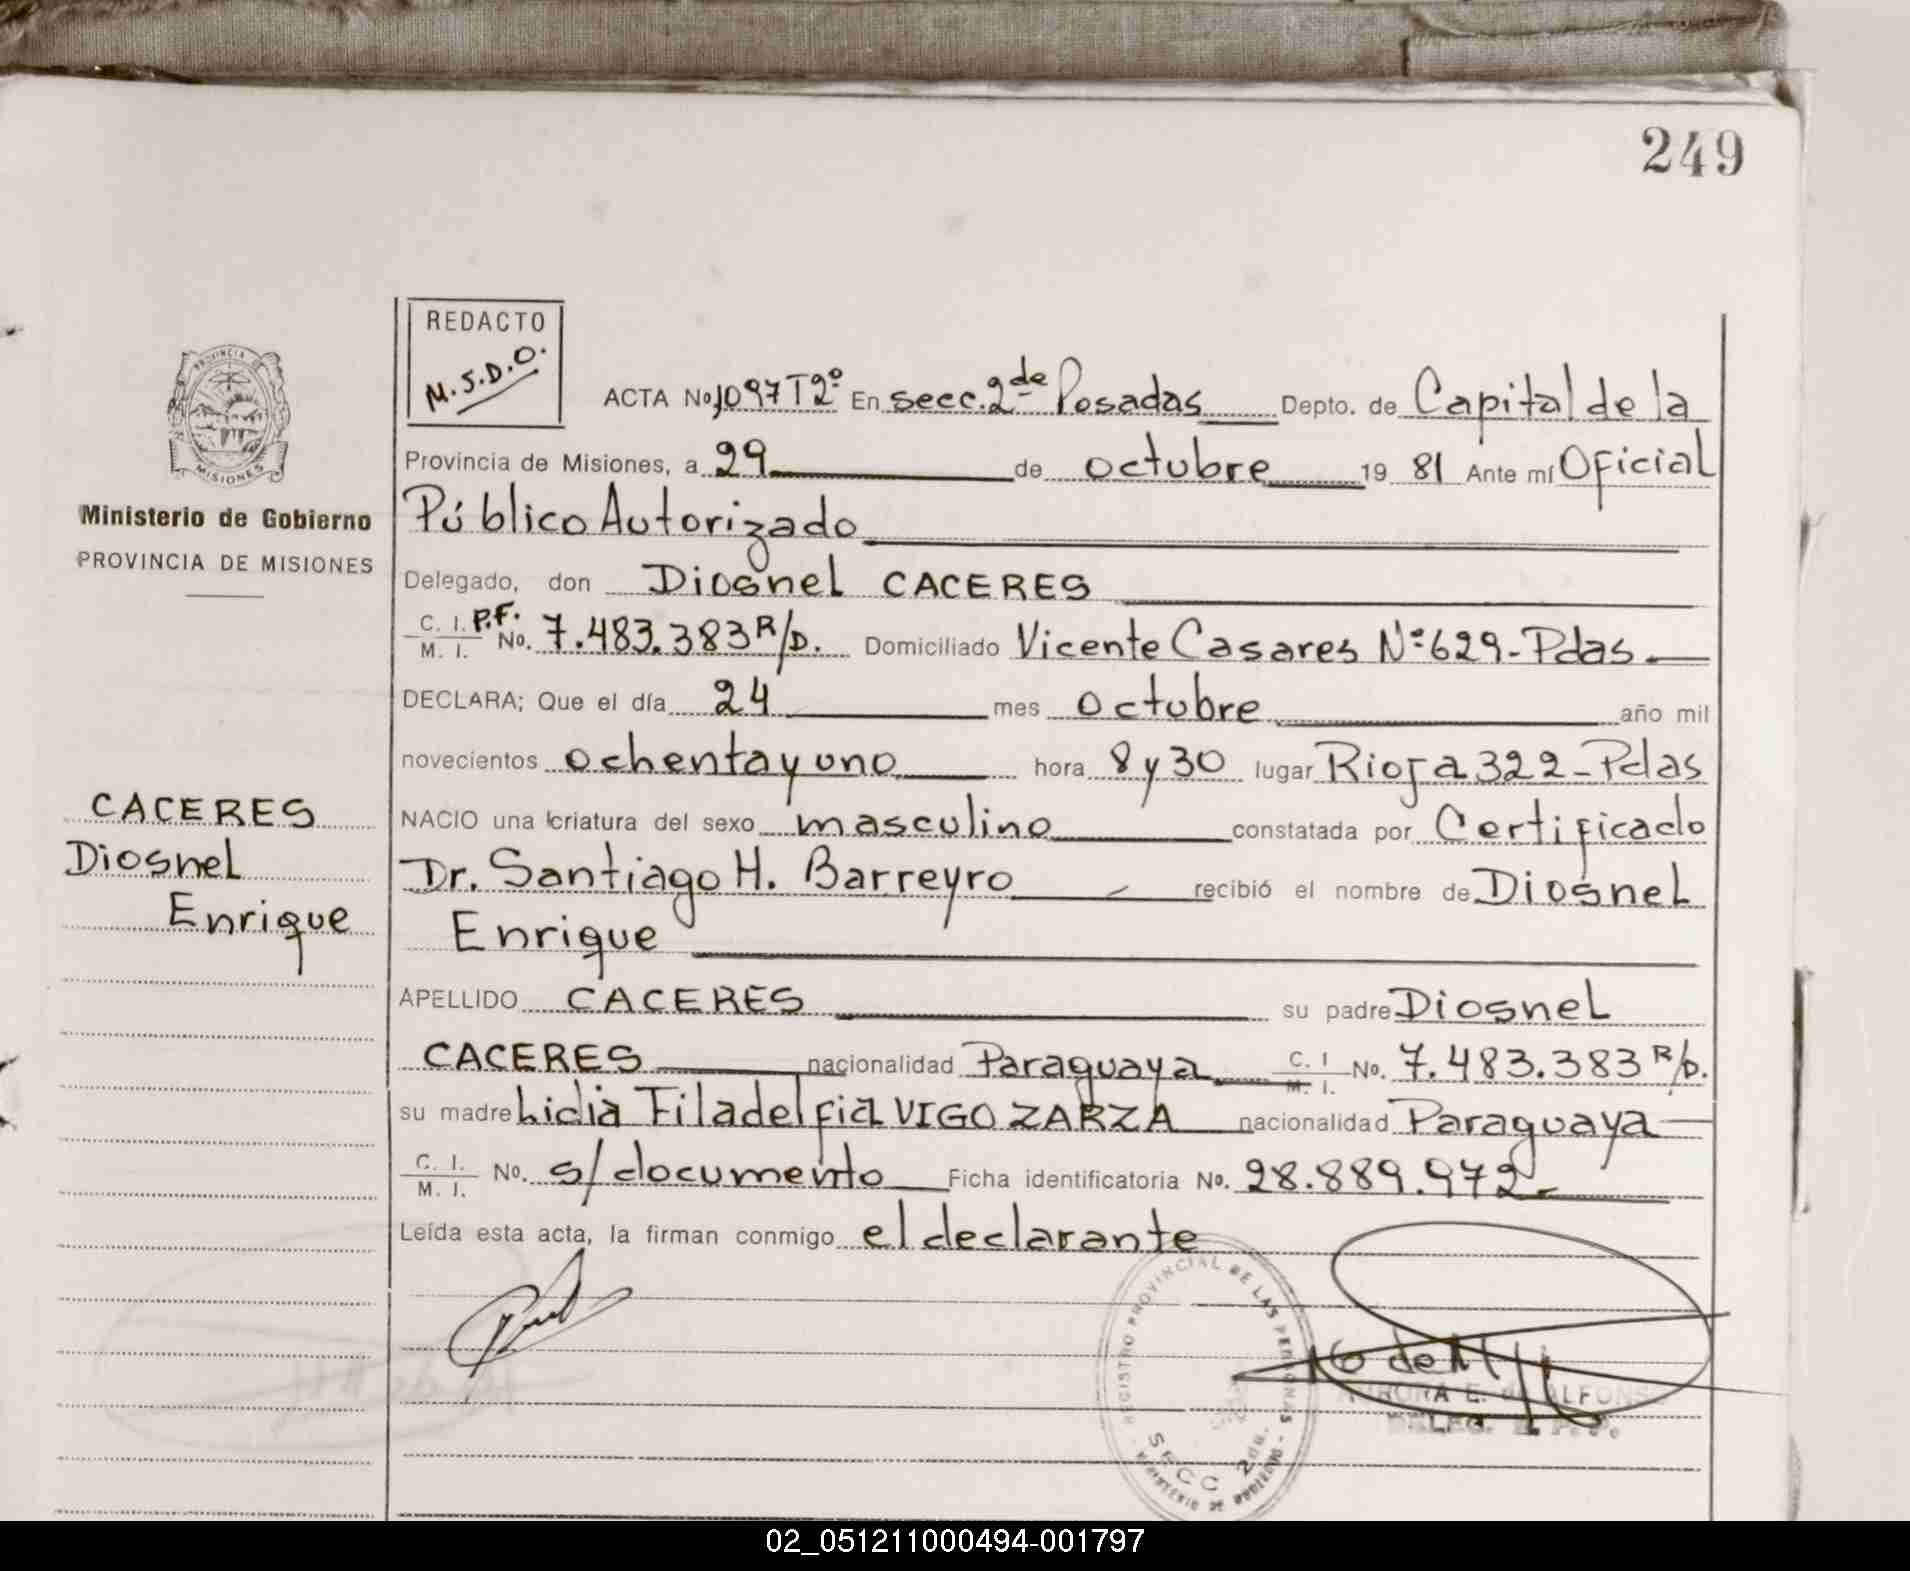 249
REDACTO
M.S.D.O.
PROVINCIA DE
MISIONES
Ministerio de Gobierno
PROVINCIA DE MISIONES
CACERES
Diosnel
Enrique
ACTA No. 1097 T2º En secc. 2da Posadas Depto. de Capital de la
Provincia de Misiones, a 29 de octubre 19 81 Ante mí Oficial
Público Autorizado
Delegado, don Diosnel CACERES
C. I. P.F. M. I. No. 7.483.383 R/D. Domiciliado Vicente Casares Nº 629-Pdas.
DECLARA; Que el día 24 mes octubre año mil
novecientos ochenta y uno hora 8 y 30 lugar Rioja 322-Pdas
NACIO una criatura del sexo masculino constatada por Certificado
Dr. Santiago H. Barreyro recibió el nombre de Diosnel
Enrique
APELLIDO CACERES su padre Diosnel
CACERES nacionalidad Paraguaya C. I. M. I. No. 7.483.383 R/D.
su madre Lidia Filadelfia VIGO ZARZA nacionalidad Paraguaya
C. I. M. I. No. s/documento Ficha identificatoria No. 28.889.972
Leída esta acta, la firman conmigo el declarante
REGISTRO PROVINCIAL DE LAS PERSONAS
SECC 2da.
MINISTERIO DE GOBIERNO
AURORA E. de ALFONSO
DELEG. R. P. P.
02_051211000494-001797